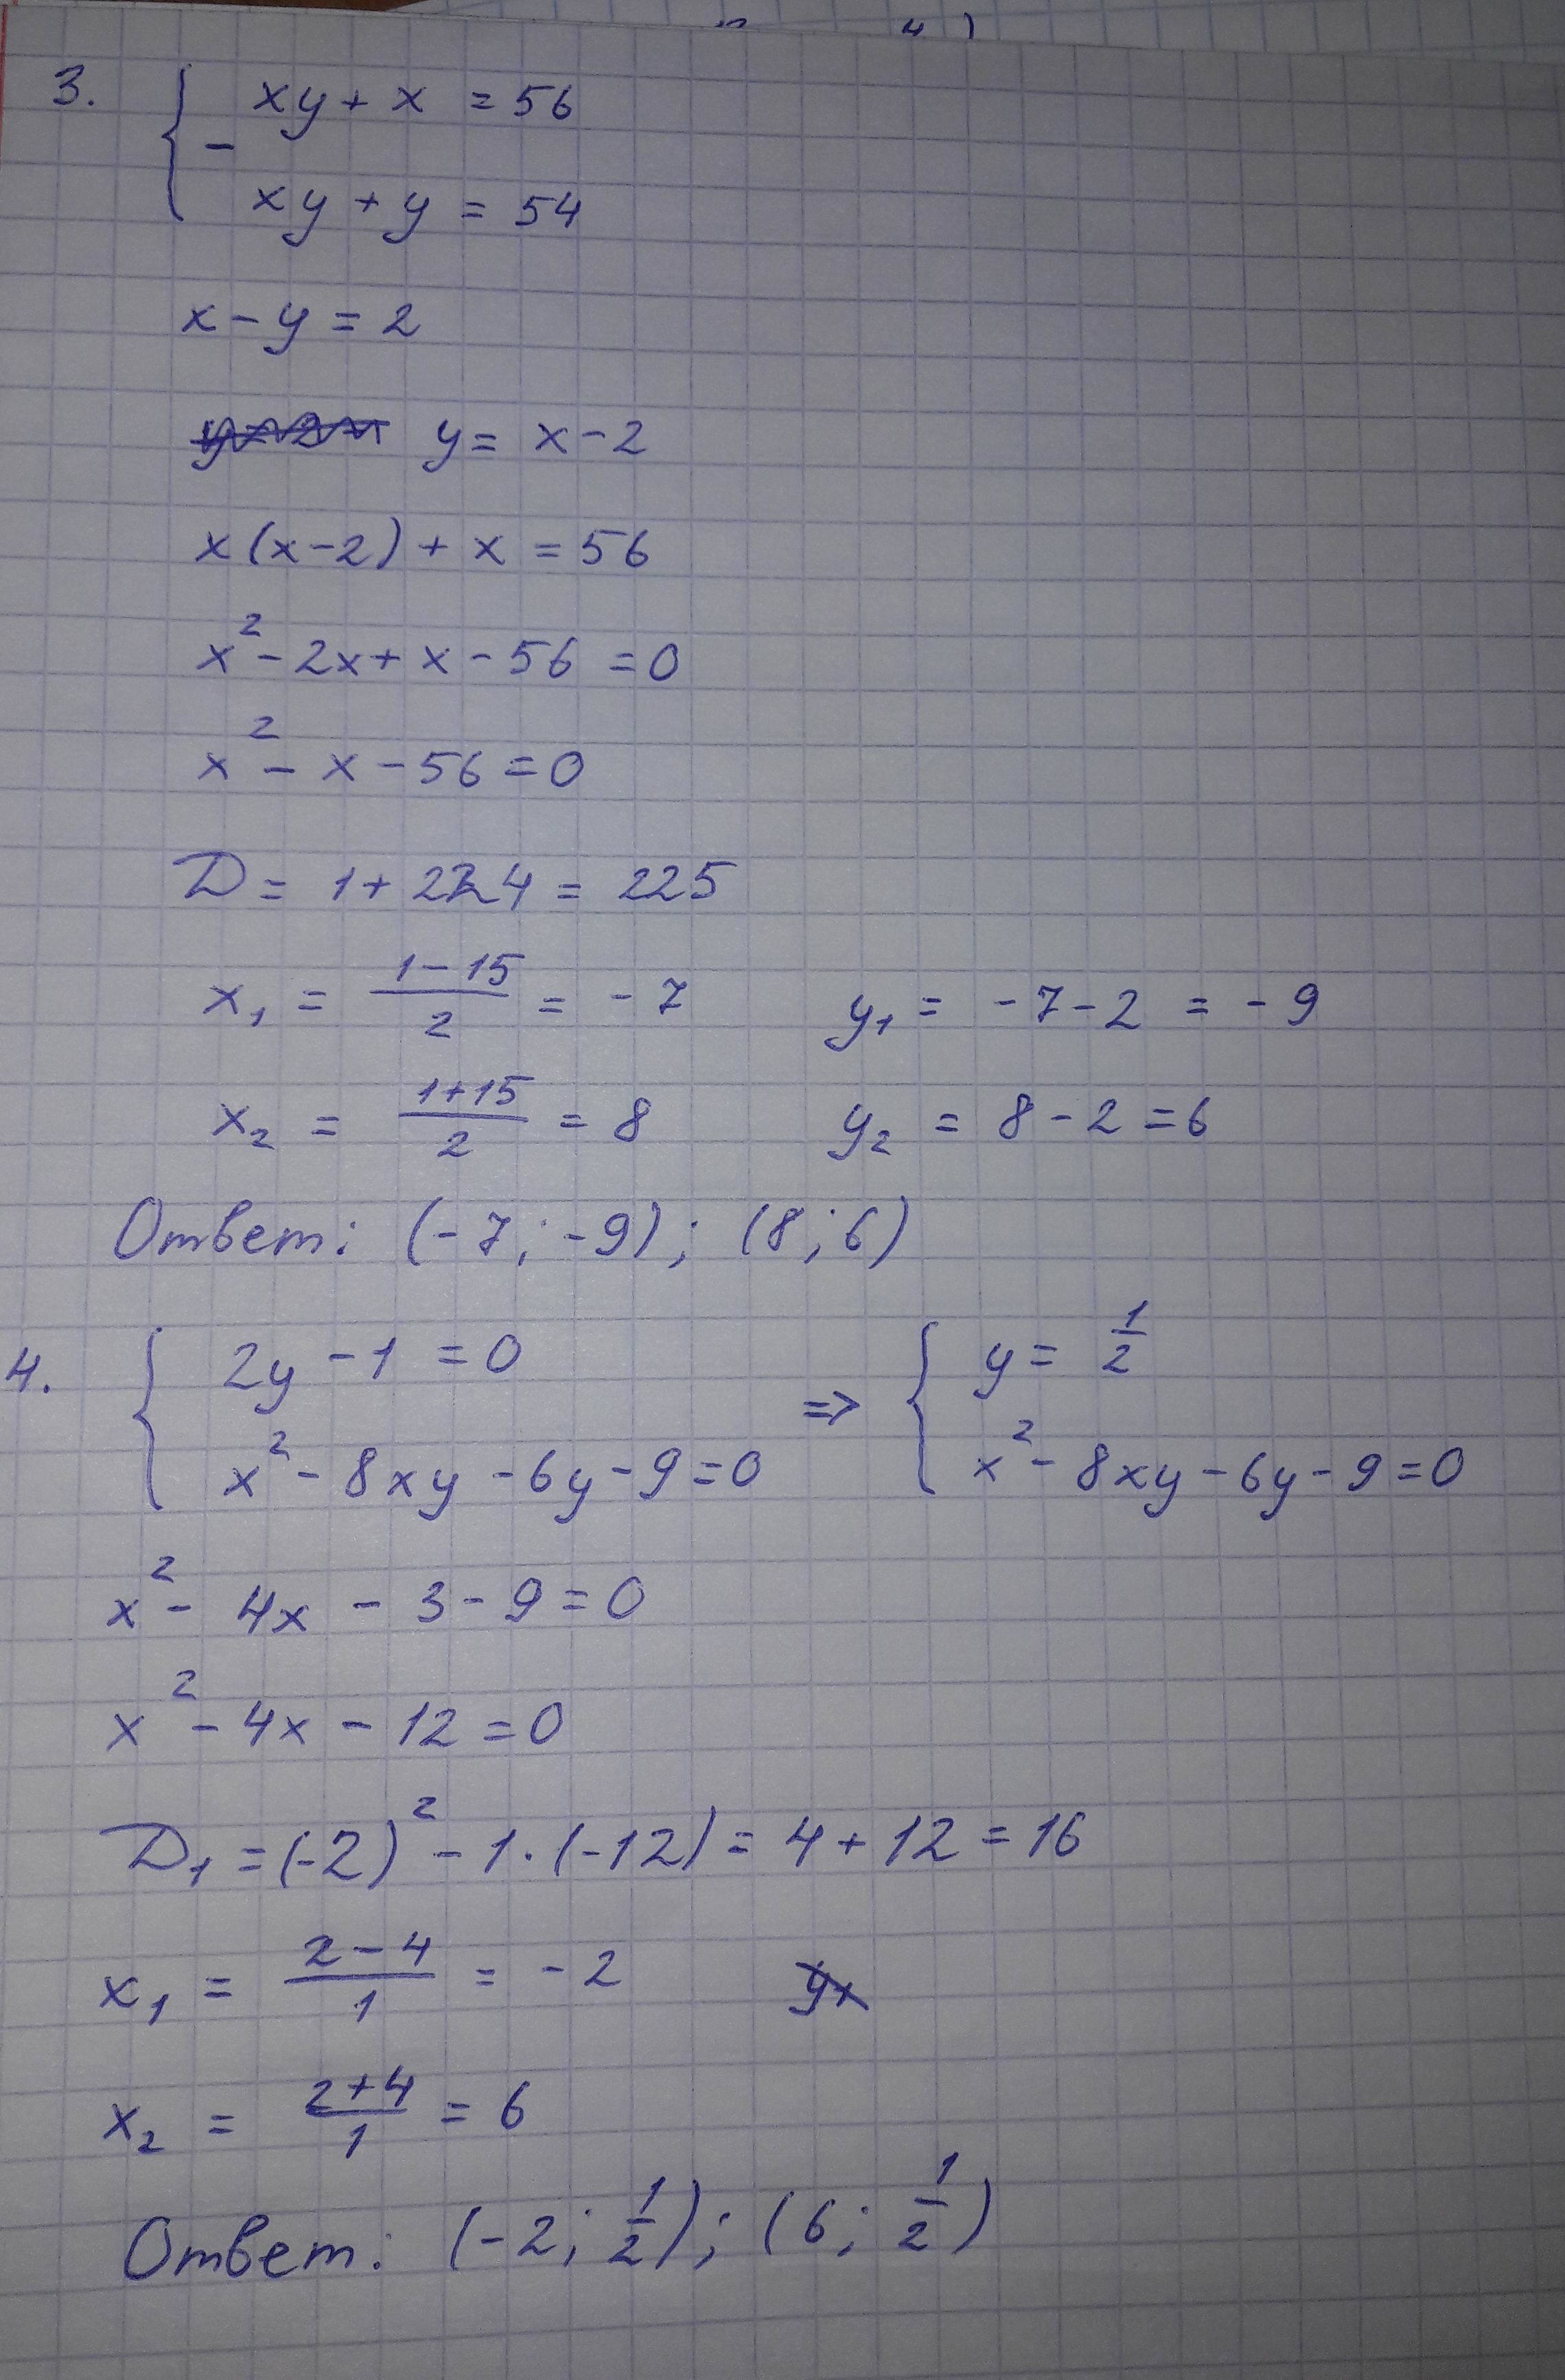 3. { xy + x = 56
- xy + y = 54
x - y = 2
y = x - 2
x(x-2) + x = 56
x² - 2x + x - 56 = 0
x² - x - 56 = 0
D = 1 + 224 = 225
x₁ = (1-15)/2 = -7 y₁ = -7-2 = -9
x₂ = (1+15)/2 = 8 y₂ = 8-2 = 6
Ответ: (-7; -9); (8; 6)
4. { 2y - 1 = 0 => { y = 1/2
x² - 8xy - 6y - 9 = 0 x² - 8xy - 6y - 9 = 0
x² - 4x - 3 - 9 = 0
x² - 4x - 12 = 0
D₁ = (-2)² - 1·(-12) = 4 + 12 = 16
x₁ = (2-4)/1 = -2
x₂ = (2+4)/1 = 6
Ответ: (-2; 1/2); (6; 1/2)